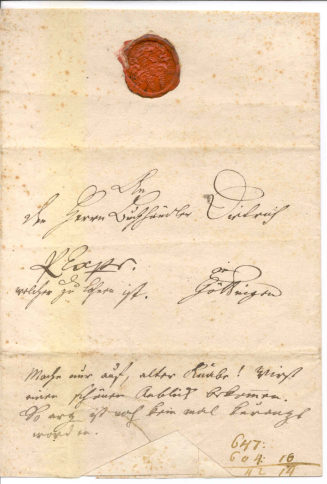 An
den Herrn Buchhändler Dietrich
in
welcher zu lesen ist. Göttingen
Mache nur auf, alter Knabe! wirst
einen schönen Anblick bekommen.
So arg ist noch kein mal
worden.
647:
604 16
42 14